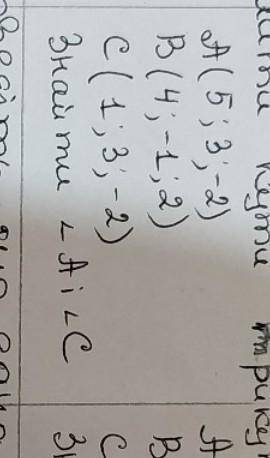 кути трикут
A(5; 3; -2)
B(4; -1; 2)
C(1; 3; -2)
Знайти ∠A і ∠C
A
B
C
Зн